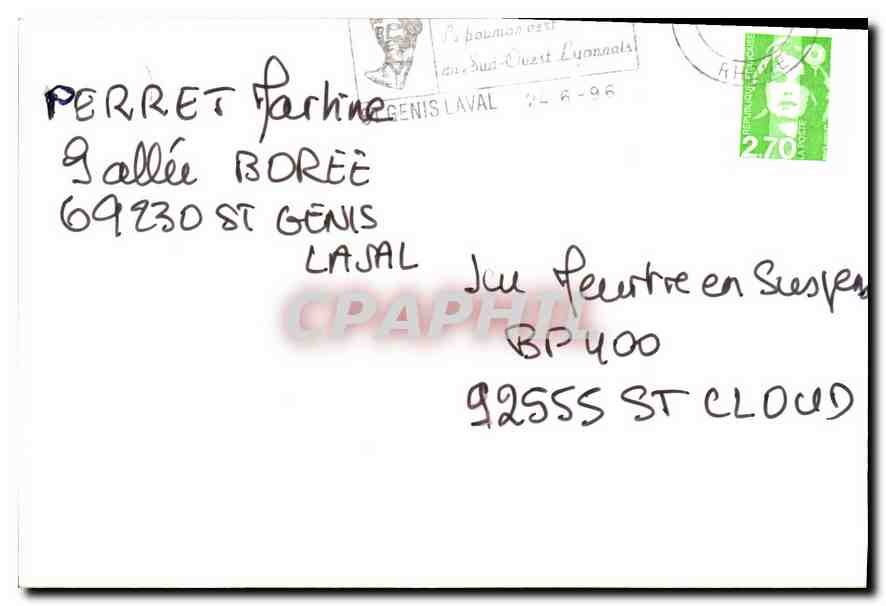 Le poumon vert
du Sud-Ouest Lyonnais
GENIS LAVAL 6-96
RHONE
RÉPUBLIQUE FRANÇAISE
LA POSTE
2,70
PERRET Martine
9 allée BORÉE
69230 ST GENIS
LAVAL
Jeu Meurtre en Suspens
BP 400
92555 ST CLOUD
CPAPHIL